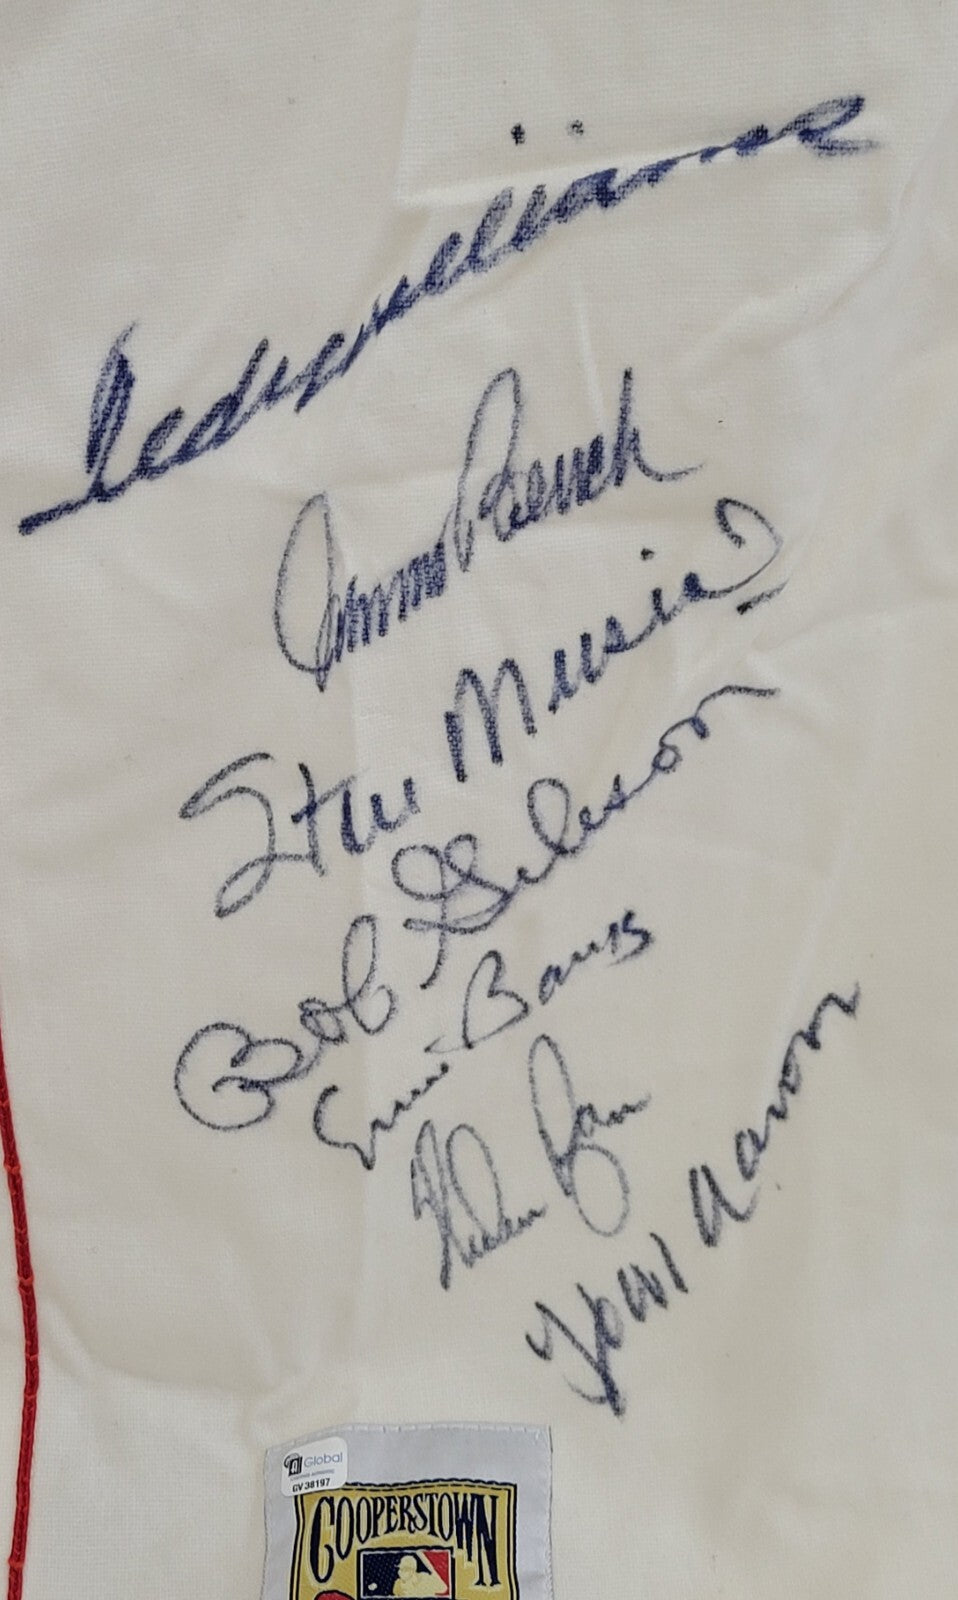 Ted Williams
Johnny Bench
Stan Musial
Bob Gibson
Ernie Banks
Nolan Ryan
Hank Aaron
Global
GV 38197
COOPERSTOWN